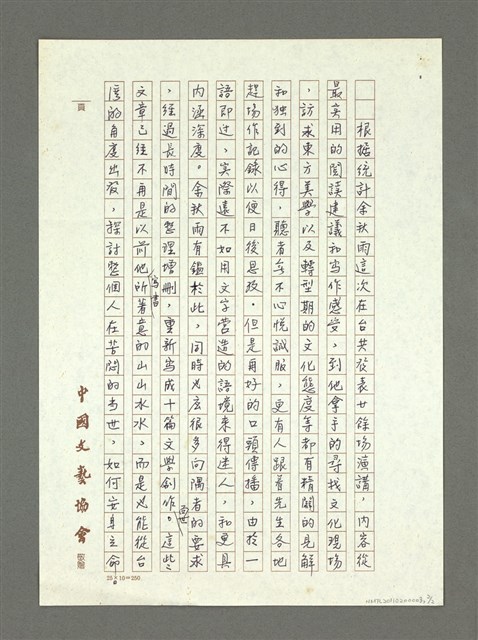 根据統計余秋雨這次在台共發表廿餘場演講，內容從
最实用的閱讀建議和寫作感受，到他拿手的尋找文化現場
，訪求東方美學以及轉型期的文化態度等都有精闢的見解
和独到的心得，聽者無不心悦誠服，更有人跟着先生各地
趕場作記録以便日後思攷。但是再好的口頭傳播，由於一
語即过，实際遠不如用文字营造的語境來得迷人，和更具
內涵深度。余秋雨有鑑於此，同時也應很多向隅者的要求
，經過長時間的整理增刪，重新寫成十篇文學創作。面世這些
文章已經不再是以前他寫書所著意的山山水水，而是也能從台
湾的角度出發，探討整個人在苦悶的当世，如何安身立命
中國文藝協會
25×10＝250